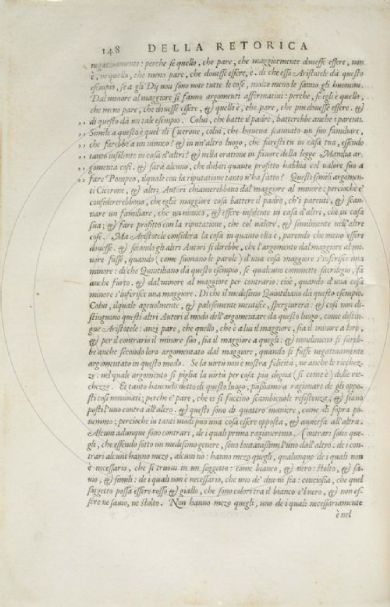 148 DELLA RETORICA
negativamente: perche se quello, che pare, che maggiormente devesse essere, non
è, ne quello, che meno pare, che dovesse essere, è. di che essò Aristotele dà questo
essempio, se a gli Dij non sono note tutte le cose, molto meno le sanno gli huomini.
Dal minore al maggiore si fanno argomenti affermativi: perche, se egli è quello,
che meno pare, che dovesse essere, & quello è, che pare, che piu devesse essere. &
di questo dà un tale essempio. Colui, che batte il padre, batterebbe anche i parenti.
Simile a questo è quel di Cicerone, colui, che haveva scannato un suo familiare,
che farebbe a un nimico? & in un'altro luogo, che faresti tu in casa tua, essendo
tanto insolente in casa d'altri? & nella oratione in favore della legge Manilia ar-
gomenta così. & sarà alcuno, che dubiti quanto profitto habbia col valore suo a
fare Pompeo, il quale con la riputatione tanto n'ha fatto? Questi simili argomen-
ti Cicerone, & altri Autori chiamerebbono dal maggiore al minore: percioche e'
considererebbono, che egli è maggior cosa battere il padre, ch'i parenti, & scan-
nare un familiare, che un nimico, & essere insolente in casa d'altri, che in casa
sua; & fare profitto con la riputatione, che col valore, & similmente nell'altre
cose. Ma Aristotele considera la cosa in quanto ella è, parendo che meno essere
dovesse. & secondo gli altri Autori si direbbe, che l'argomento dal maggiore al mi-
nore fusse, quando (come suonano le parole) d'una cosa maggiore s'inferisce una
minore: di che Quintiliano dà questo essempio, se qualcuno commette sacrilegio, fa
anche furto. & dal minore al maggiore per contrario: cioè, quando d'una cosa
minore s'inferisce una maggiore. Di che il medesimo Quintiliano dà questo essempio.
Colui, il quale agevolmente, & palesemente mentisce, spergiurerà: & così non di-
stinguono questi altri Autori il modo dell'argomentare da questo luogo, come distin-
gue Aristotele: anzi pare, che quello, che è a lui il maggiore, sia il minore a loro,
& per il contrario il minore suo, sia il maggiore a quegli. & nondimeno si sareb-
be anche secondo loro argomentato dal maggiore, quando si fusse negativamente
argomentato in questo modo. Se la virtù non è nostra felicità, ne anche le ricchez-
ze: nel quale argomento si piglia la virtù per cosa piu degna (si come è) delle ric-
chezze. Et tanto havendo detto di questo luogo, passiamo a ragionare de gli oppo-
sti così nominati; perche e' pare, che ei si faccino scambievole resistenza, & siano
posti l'uno contra all'altro. & questi sono di quattro maniere, come di sopra po-
nemmo; percioche in tanti modi puo una cosa essere opposta, & aversa all'altra.
Alcuni adunque sono contrari, de i quali prima ragioneremo. Contrari sono que-
gli, che essendo sotto un medesimo genere, sono lontanissimi l'uno dall'altro. de i con-
trari alcuni hanno mezo, alcuni nò: hanno mezo quegli, qualunque de i quali non
è necessario, che si truovi in un soggetto: come bianco, & nero: stolto, & sa-
vio, & simili: de i quali non è necessario, che uno de' due vi sia: conciosia, che quel
soggetto possa essere rosso & giallo, che sono colori tra il bianco e'l nero, & non es-
sere ne savio, ne stolto. Non hanno mezo quegli, uno de i quali necessariamente
è nel